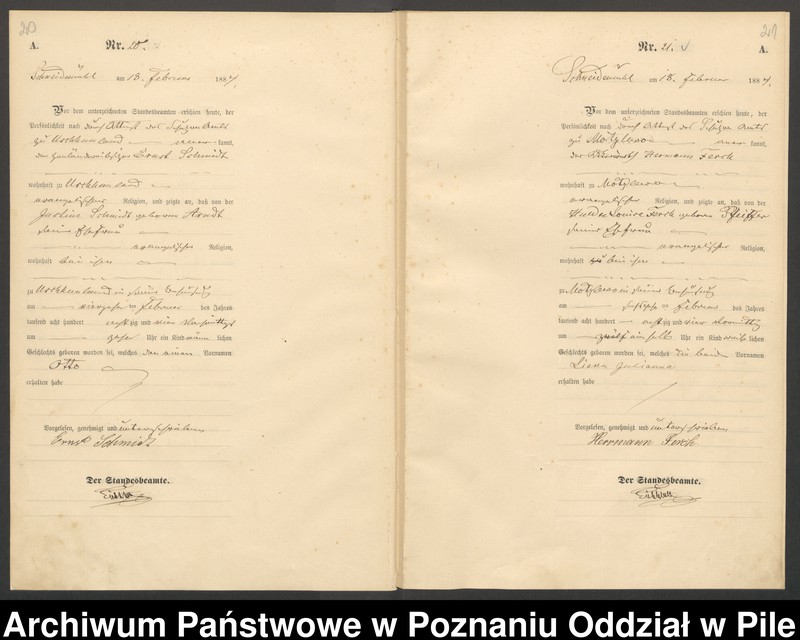 20
A.
Nr. 20
Schneidemühl am 18. Februar 1884.
Vor dem unterzeichneten Standesbeamten erschien heute, der
Persönlichkeit nach durch Attest des Schulzen Amts
zu Uschhauland anerkannt,
der Ernst Schmidt
wohnhaft zu Uschhauland
evangelischer Religion, und zeigte an, daß von der
Justine Schmidt geborene Arndt
seiner Ehefrau
evangelischer Religion,
wohnhaft bei ihm
zu Uschhauland in seiner Behausung
am vierzehn ten Februar des Jahres
tausend acht hundert achtzig und vier Vormittags
um Uhr ein Kind männlichen
Geschlechts geboren worden sei, welches den einen Vornamen
Otto
erhalten habe
Vorgelesen, genehmigt und unterschrieben
Ernst Schmidt
Der Standesbeamte.
21
Nr. 21.
A.
Schneidemühl am 18. Februar 1884.
Vor dem unterzeichneten Standesbeamten erschien heute, der
Persönlichkeit nach durch Attest des Schulzen Amts
zu anerkannt,
der Hermann Ferch
wohnhaft zu
evangelischer Religion, und zeigte an, daß von der
Louise Ferch geborene Pfeiffer
seiner Ehefrau
evangelischer Religion,
wohnhaft bei ihm
zu in seiner Behausung
am ten Februar des Jahres
tausend acht hundert achtzig und vier
um Uhr ein Kind weiblichen
Geschlechts geboren worden sei, welches die beiden Vornamen
Julianna
erhalten habe
Vorgelesen, genehmigt und unterschrieben
Herrmann Ferch
Der Standesbeamte.
Archiwum Państwowe w Poznaniu Oddział w Pile